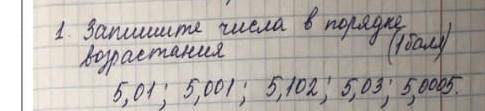 1. Запишите числа в порядке
возрастания (1 балл)
5,01; 5,001; 5,102; 5,03; 5,0005.